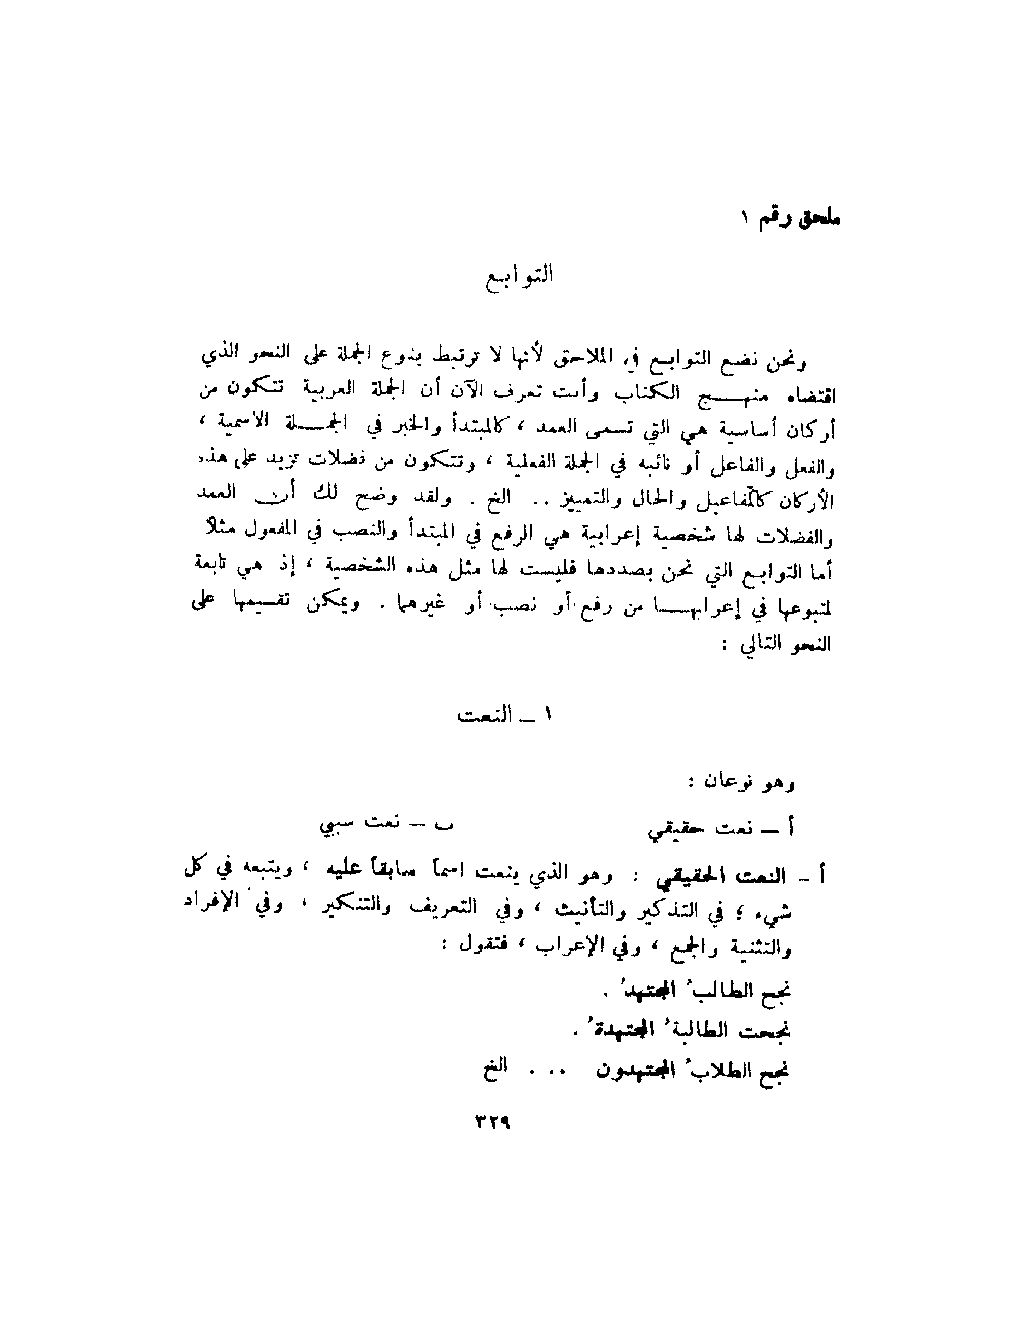 ملحق رقم ١
التوابع
ونحن نضع التوابع في الملاحق لأنها لا ترتبط بنوع الجملة على النحو الذي
اقتضاه منهج الكتاب وأنت تعرف الآن أن الجملة العربية تتكون من
أركان أساسية هي التي تسمى العمد ، كالمبتدأ والخبر في الجملة الاسمية ،
والفعل والفاعل أو نائبه في الجملة الفعلية ، وتتكون من فضلات تزيد على هذه
الأركان كالمفاعيل والحال والتمييز .. الخ . ولقد وضح لك أن العمد
والفضلات لها شخصية إعرابية هي الرفع في المبتدأ والنصب في المفعول مثلاً
أما التوابع التي نحن بصددها فليست لها مثل هذه الشخصية ، إذ هي تابعة
لمتبوعها في إعرابها من رفع أو نصب أو غيرهما . ويمكن تقسيمها على
النحو التالي :
١ ــ النعت
وهو نوعان :
أ ــ نعت حقيقي ب ــ نعت سببي
أ ــ النعت الحقيقي : وهو الذي ينعت اسماً سابقاً عليه ، ويتبعه في كل
شيء ؛ في التذكير والتأنيث ، وفي التعريف والتنكير ، وفي الإفراد
والتثنية والجمع ، وفي الإعراب ، فتقول :
نجح الطالبُ المجتهدُ .
نجحت الطالبةُ المجتهدةُ .
نجح الطلابُ المجتهدون ... . الخ
٣٢٩